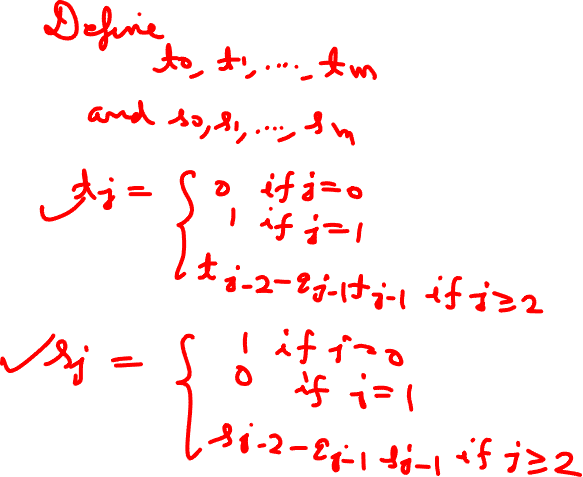 Define
t0, t1, ..., tm
and s0, s1, ..., sm
✓ tj = { 0 if j=0
1 if j=1
tj-2 - qj-1 tj-1 if j≥2
✓ sj = { 1 if j=0
0 if j=1
sj-2 - qj-1 sj-1 if j≥2